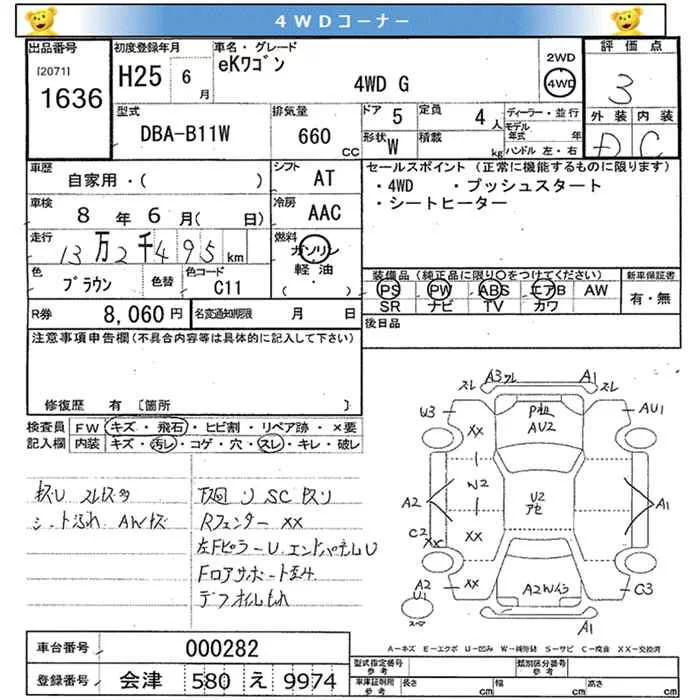 4WDコーナー
出品番号
[2071]
1636
初度登録年月
H25 6月
車名・グレード
eKワゴン
4WD G
2WD
4WD
評価点
3
外装 内装
D C
型式
DBA-B11W
排気量
660 CC
ドア 5
定員 4人
形状 W
積載 kg
ディーラー・並行
モデル年式 年
ハンドル 左・右
車歴
自家用・( )
シフト AT
車検
8年6月( 日)
冷房 AAC
走行
13万2千495km
燃料
ガソリン
軽油・
( )
色
ブラウン
色替
色コード
C11
セールスポイント(正常に機能するものに限ります)
・4WD ・プッシュスタート
・シートヒーター
装備品(純正品に限り○をつけてください)
PS PW ABS エアB AW
SR ナビ TV カワ
新車保証書
有・無
R券 8,060円
名変通知期限 月 日
後日品
注意事項申告欄(不具合内容等は具体的に記入して下さい)
修復歴 有 〔箇所 〕
検査員記入欄
FW キズ・飛石・ヒビ割・リペア跡・×要
内装 キズ・汚レ・コゲ・穴・スレ・キレ・破レ
キズU スレキズ多
シート汚れ AWキズ
下回りSCキズリ
Rフェンダー XX
左Fピラー U エンドパネルU
Fロアサポート歪み
デフオイルもれ
スレ A3ワレ A1 スレ
U3 AU1
XX AU2
W2 U2 アセ
A2 A1
C2 XX XX
A2 U1 A2Wハンコ C3
スペア A1
A=キズ E=エクボ U=凹み W=補修跡 S=サビ C=腐食 XX=交換済
車台番号 000282
登録番号 会津 580 え 9974
型式指定番号 参考
類別区分番号 参考
車庫証明用 参考
長さ cm
幅 cm
高さ cm